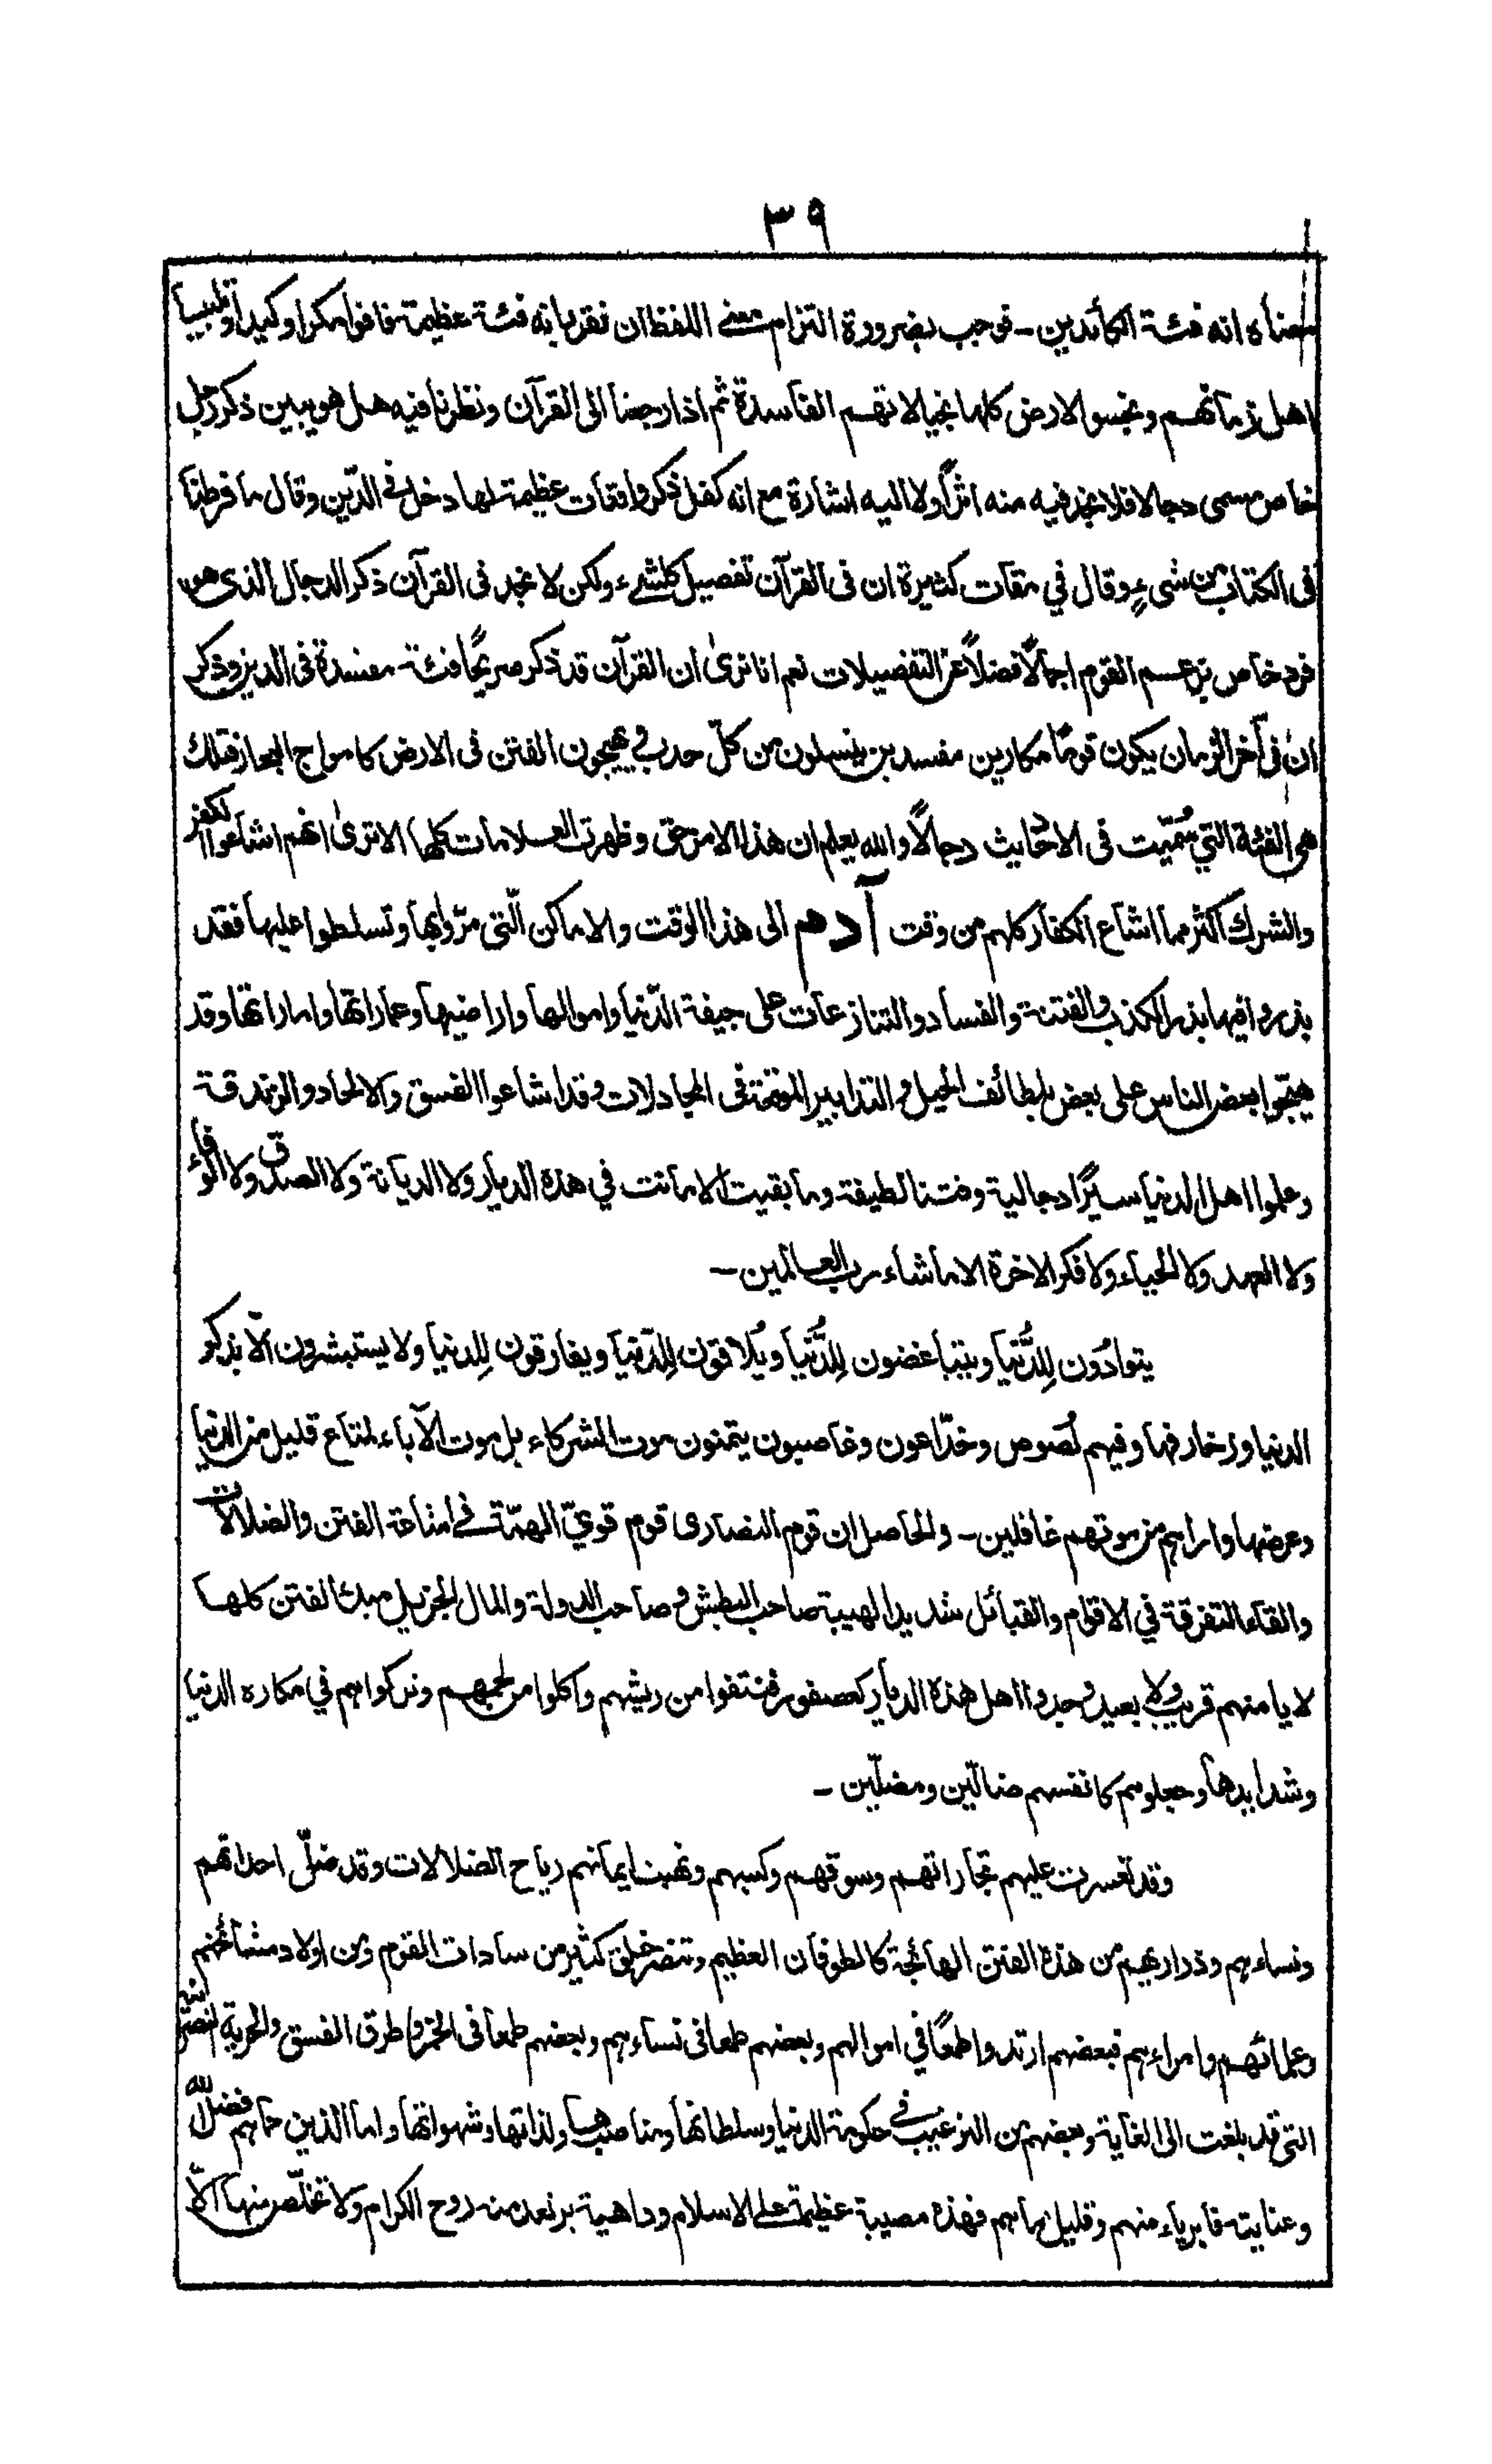 ٣٩
معناه انه فئة الكائدين ـ فوجب بضرورة التزام معنى اللفظ ان نقر بانه فئة عظيمة فاقوا مكرا وكيدا وتلبيسا
اهل زمانهم ونجسوا الارض كلها بخيالاتهم الفاسدة ثم اذا رجعنا الى القرآن ونظرنا فيه هل هو يبين ذكر رجل
خاص مسمى دجالا فلا نجد فيه منه اثرًا ولا اليه اشارة مع انه كفل ذكر واقعات عظيمة لها دخل فى الدّين وقال ما فرطنا
فى الكتاب من شىءٍ وقال في مقامات كثيرة ان فى القرآن تفصيل كلشىء ولكن لا نجد فى القرآن ذكر الدجال الذى هو
فرد خاص بزعم القوم اجمالًا فضلًا عن التفصيلات نعم انا نرىٰ ان القرآن قد ذكر صريحًا فئة مفسدة فى الدين وذكر
ان فى آخر الزمان يكون قومًا مكارين مفسدين ينسلون من كلّ حدب ويهيجون الفتن فى الارض كامواج البحار فتلك
هى الفئة التي سُمّيت فى الاحاديث دجالًا والله يعلم ان هذا الامر حق وظهرت العلامات كلها الا ترىٰ انهم اشاعوا الكفر
والشرك اكثر مما اشاع الكفار كلهم من وقت آدم الى هذا الوقت والاماكن الّتى مرّوا بها وتسلطوا عليها فقد
بذروا فيها بذر الكذب والفتنة والفساد والتنازعات على جيفة الدّنيا واموالها واراضيها وعماراتها واماراتها وقد
هيّجوا بعض الناس على بعض بلطائف الحيل و التدابير الموقعة فى المجادلات وقد اشاعوا الفسق والالحاد والزندقة
وعلموا اهل الدنيا سيرًا دجالية وفتنا لطيفة وما بقيت الامانت في هذه الديار ولا الديانة ولا الصدق ولا الوفاء
ولا العهد ولا الحياء ولا فكر الاخرة الا ما شاء رب العالمين ـ
يتوادّون لِلدُّنيا ويتباغضون لِلدُّنيا ويُلاقون لِلدّنيا ويفارقون لِلدنيا ولا يستبشرون الّا بذكر
الدنيا وزخارفها وفيهم لُصوص وخدّاعون وغاصبون يتمنون موت الشركاء بل موت الآباء لمتاع قليل من الدنيا
وعرضها واراهم من موتهم غافلين ـ والحاصل ان قوم النصارى قوم قويّ الهمّة فى اشاعة الفتن والضلالات
والقاء التفرقة في الاقوام والقبائل شديد الهيبة صاحب البطش و صاحب الدولة والمال الجزيل مبدء الفتن كلها
لا يامنهم قريب ولا بعيد وجدوا اهل هذه الديار كعصفور فنتفوا من ريشهم واكلوا من لحمهم وتركوا هم في مكاره الدنيا
وشدايدها وجعلوهم كانفسهم ضالّين ومضلّين ـ
وقد تعسرت عليهم تجاراتهم وسوقهم وكسبهم ونهبت ايمانهم رياح الضلالات وقد ضلّ احداثهم
ونساءهم وذراريهم من هذه الفتن الهائجة كالطوفان العظيم وتنصر خلق كثير من سادات القوم ومن اولاد مشائخهم
وعلمائهم وامراءهم فبعضهم ارتدوا طمعًا في اموالهم وبعضهم طمعا فى نساءهم وبعضهم طمعا فى الخمر وطرق الفسق والحرية
التى قد بلغت الى الغاية وبعضهم من الترغيب فى حكومة الدنيا وسلطانها ومناصبها ولذاتها وشهواتها واما الذين حماهم فضل الله
وعنايته فابرياء منهم وقليل ما هم فهذه مصيبة عظيمة على الاسلام وداهية يرتعد منه روح الكرام ولا تخلّص منها الّا